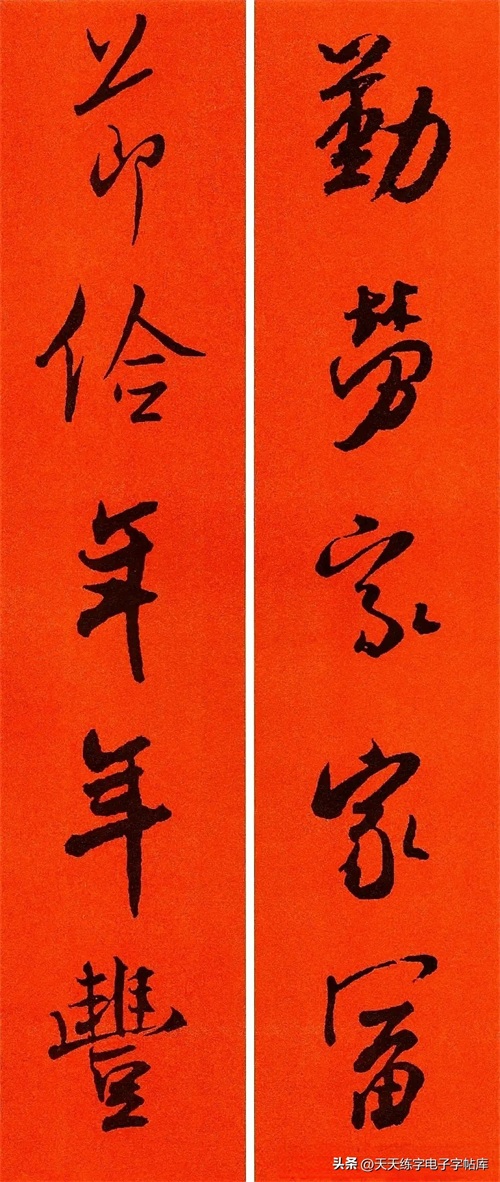 勤勞家家富
節儉年年豐
头条 @天天练字电子字帖库